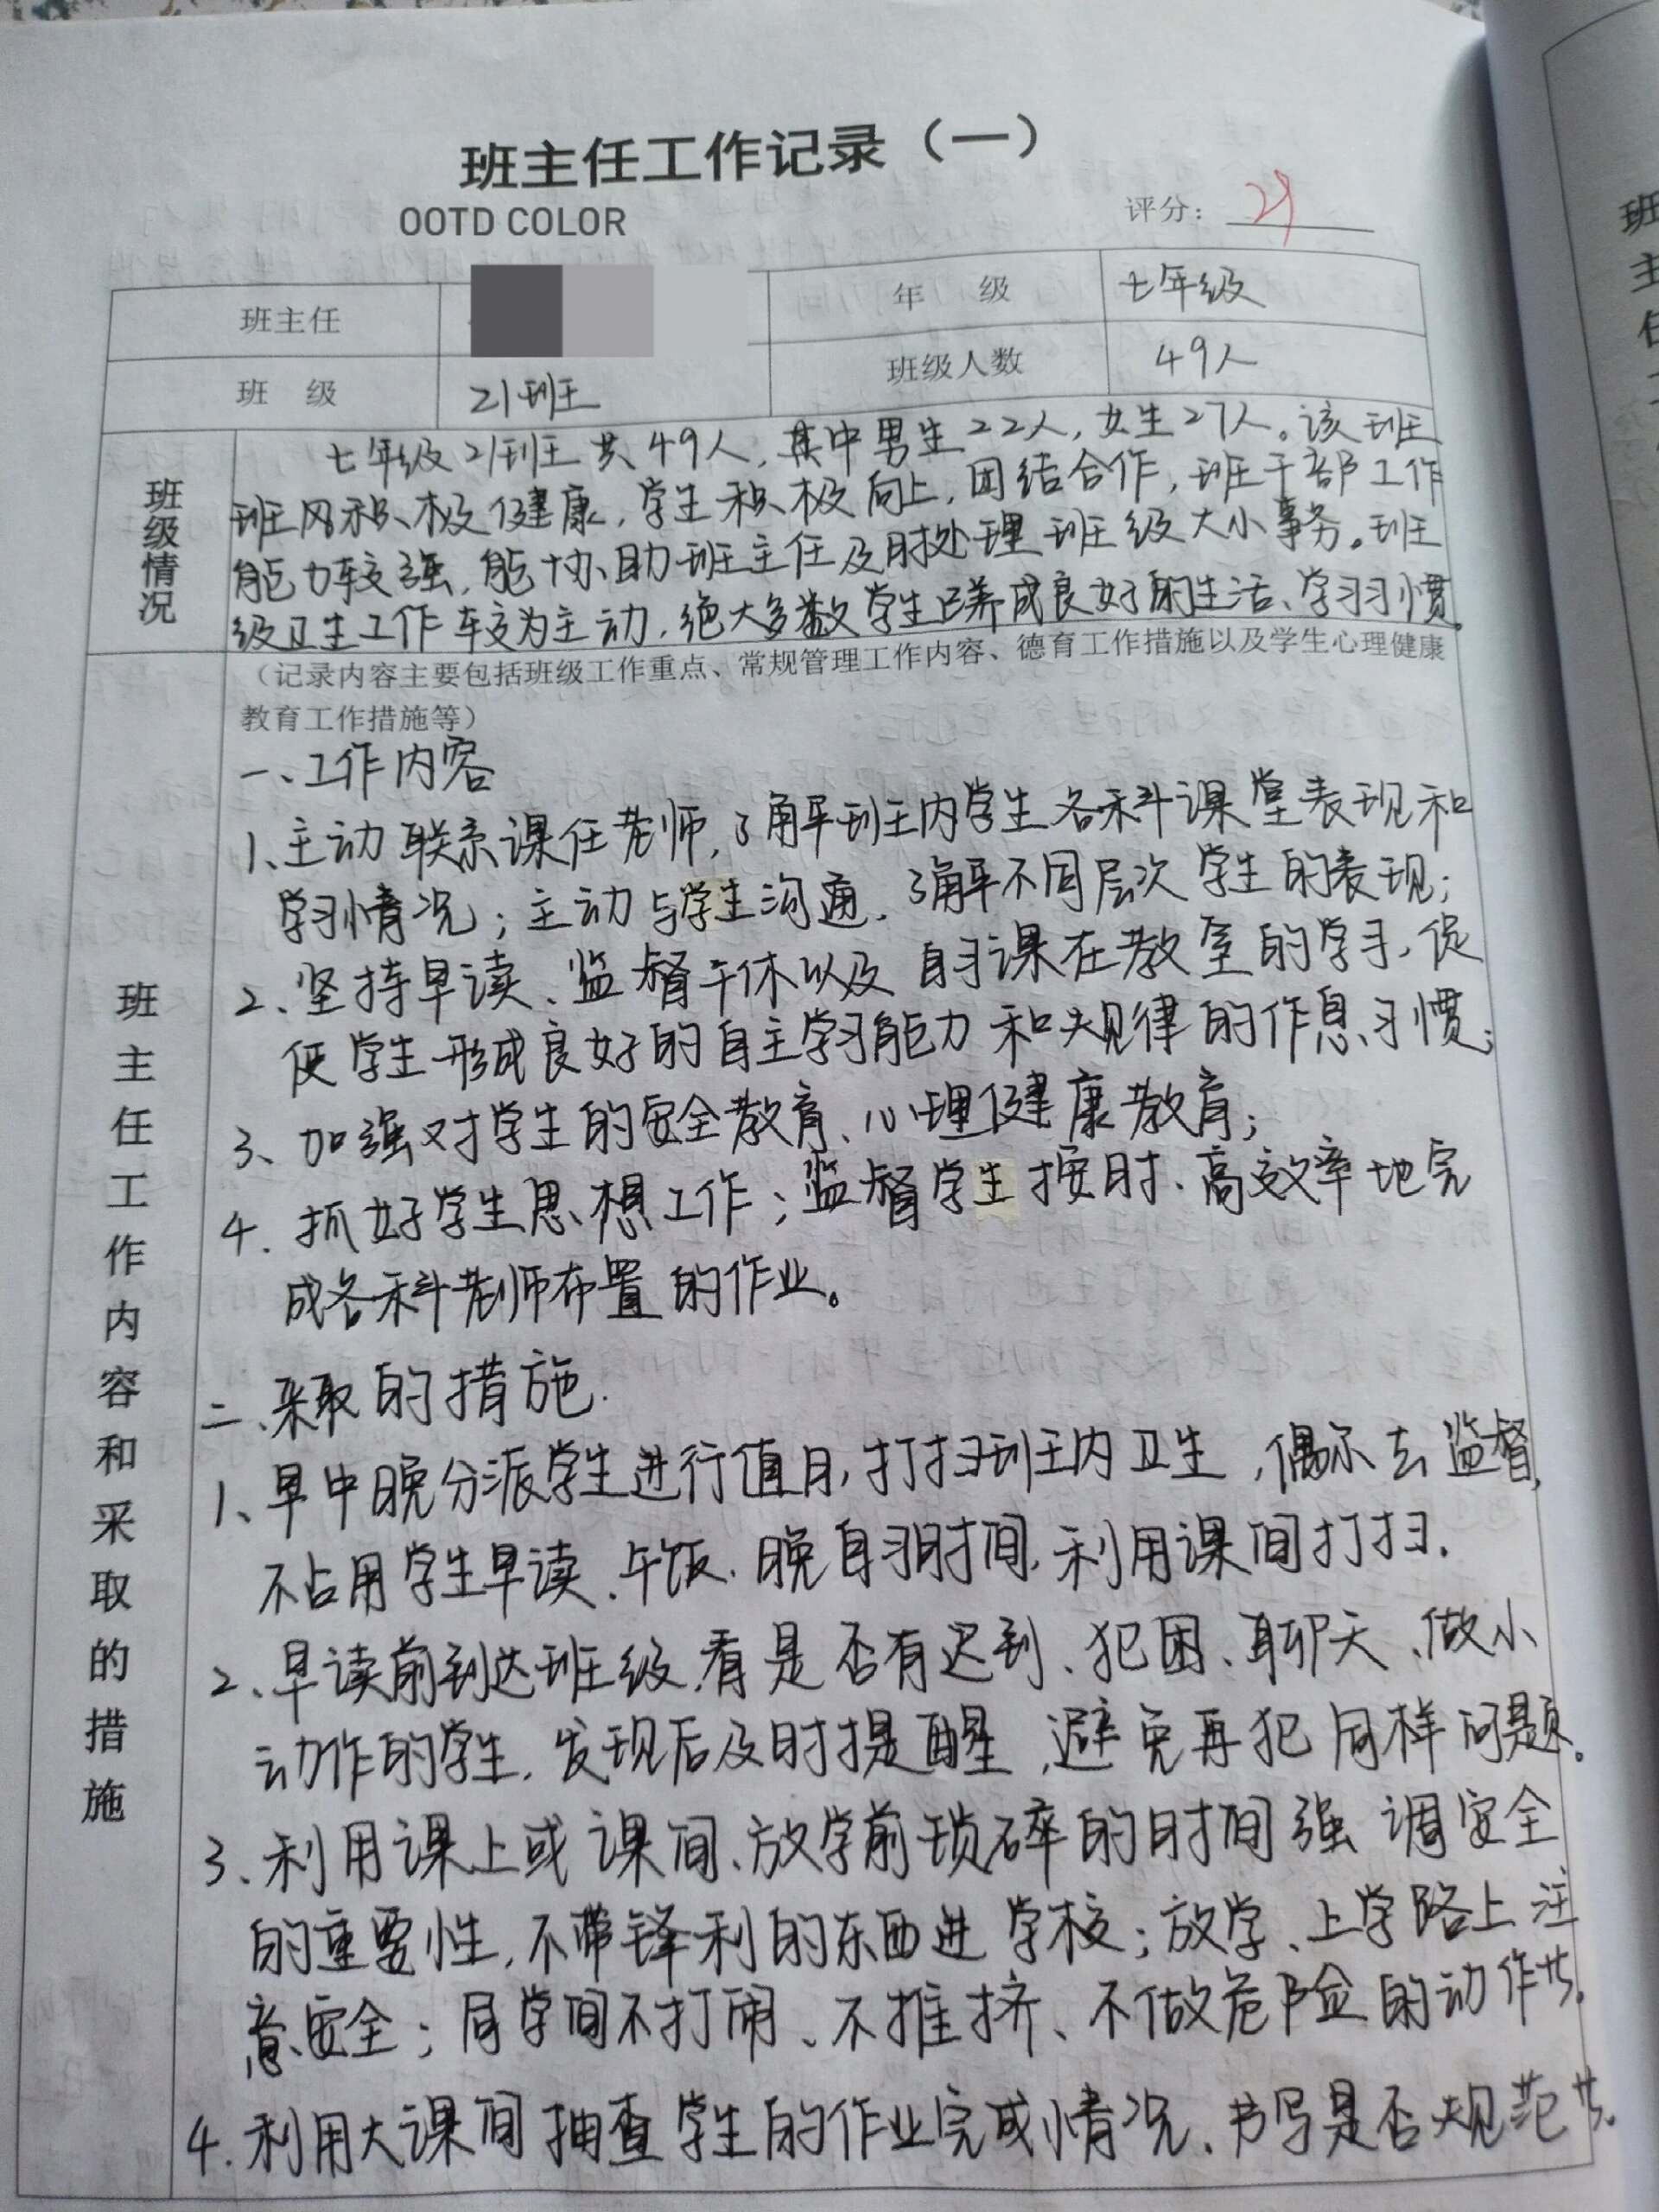 班主任工作记录（一）
OOTD COLOR
评分：29
班主任
年 级 七年级
班 级 21班
班级人数 49人
班级情况
七年级21班共49人，其中男生22人，女生27人。该班
班风积极健康，学生积极向上，团结合作，班干部工作
能力较强，能协助班主任及时处理班级大小事务。班
级卫生工作较为主动，绝大多数学生已养成良好的生活、学习习惯。
班主任工作内容和采取的措施
（记录内容主要包括班级工作重点、常规管理工作内容、德育工作措施以及学生心理健康
教育工作措施等）
一、工作内容
1、主动联系课任老师，了解班内学生各科课堂表现和
学习情况；主动与学生沟通，了解不同层次学生的表现；
2、坚持早读、监督午休以及自习课在教室的学习，促
使学生形成良好的自主学习能力和规律的作息习惯；
3、加强对学生的安全教育、心理健康教育；
4. 抓好学生思想工作；监督学生按时、高效率地完
成各科老师布置的作业。
二、采取的措施.
1、早中晚分派学生进行值日，打扫班内卫生，偶尔去监督，
不占用学生早读、午饭、晚自习时间，利用课间打扫.
2、早读前到达班级，看是否有迟到、犯困、聊天、做小
动作的学生，发现后及时提醒，避免再犯同样问题。
3、利用课上或课间、放学前琐碎的时间强调安全
的重要性，不带锋利的东西进学校；放学、上学路上注
意安全；同学间不打闹、不推挤、不做危险的动作等。
4. 利用大课间抽查学生的作业完成情况、书写是否规范等。
班
主
任